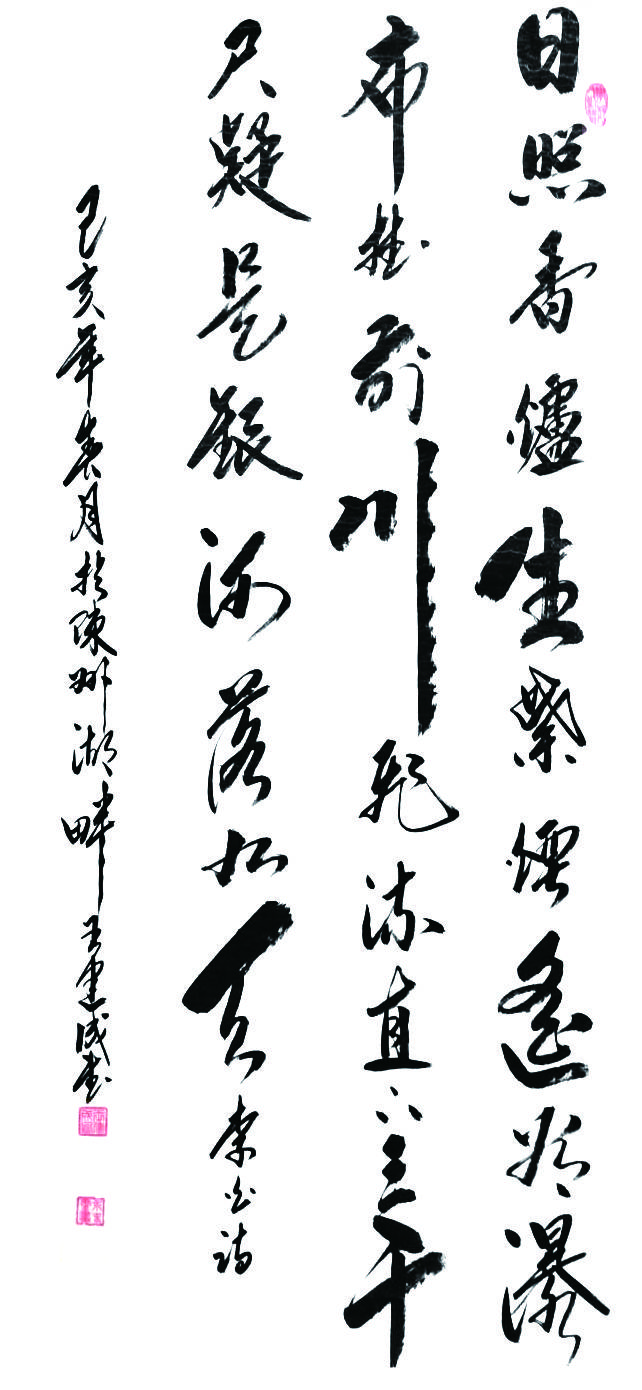 日照香爐生紫煙遙看瀑
布掛前川飛流直下三千
尺疑是銀河落九天李白詩
己亥年春月於陳州湖畔王成書